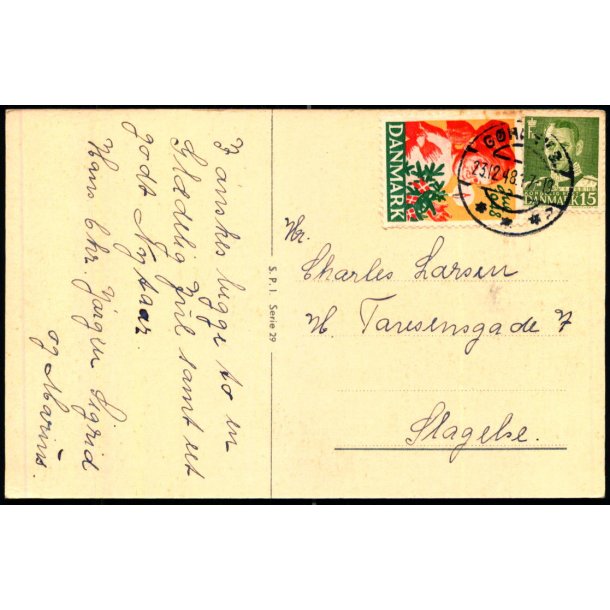 I önskes begge to en
Glædelig Jul samt et
godt Nytaar.
Hans Chr. Jørgen Sigrid
og Marius.
S. P. I. Serie 29
DANMARK
Jul
1948
23.12.48.17-18
DANMARK 15
Hr.
Charles Larsen
H. Taresensgade 7
Slagelse.